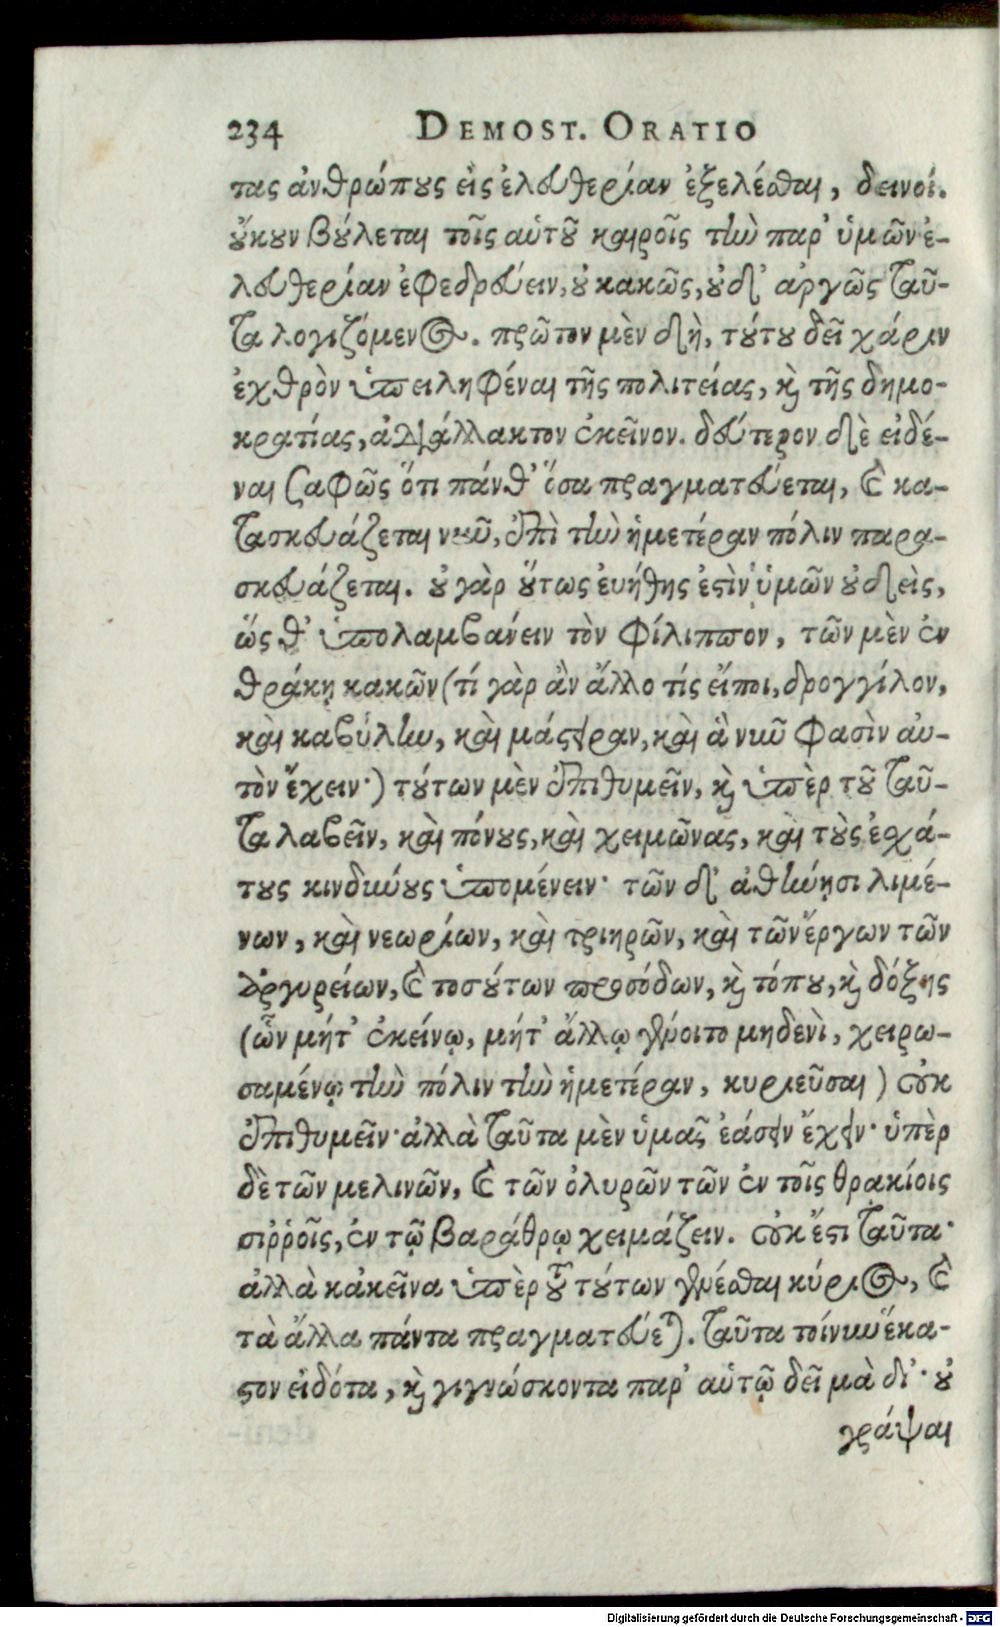 234 DEMOST. ORATIO
τας ἀνθρώπους εἰς ἐλευθερίαν ἐξελέσθαι, δεινοί.
οὔκουν βούλεται τοῖς αὑτοῦ καιροῖς τὴν παρ' ὑμῶν ἐ-
λευθερίαν ἐφεδρεύειν, οὐ κακῶς, οὐδ' ἀργῶς ταῦ-
τα λογιζόμενος. πρῶτον μὲν δὴ, τούτου δεῖ χάριν
ἐχθρὸν ὑπειληφέναι τῆς πολιτείας, καὶ τῆς δημο-
κρατίας, ἀδιάλλακτον ἐκεῖνον. δεύτερον δὲ εἰδέ-
ναι σαφῶς ὅτι πάνθ' ὅσα πραγματεύεται, καὶ κα-
τασκευάζεται νῦν, ἐπὶ τὴν ἡμετέραν πόλιν παρα-
σκευάζεται. οὐ γὰρ οὕτως εὐήθης ἐστὶν ὑμῶν οὐδεὶς,
ὥς θ' ὑπολαμβάνειν τὸν Φίλιππον, τῶν μὲν ἐν
Θράκῃ κακῶν (τί γὰρ ἂν ἄλλο τίς εἴποι, δρογγίλον,
καὶ καβύλην, καὶ μάστειραν, καὶ ἃ νῦν φασὶν αὐ-
τὸν ἔχειν·) τούτων μὲν ἐπιθυμεῖν, καὶ ὑπὲρ τοῦ ταῦ-
τα λαβεῖν, καὶ πόνους, καὶ χειμῶνας, καὶ τοὺς ἐσχά-
τους κινδύνους ὑπομένειν· τῶν δ' ἀθήνῃσι λιμέ-
νων, καὶ νεωρίων, καὶ τριηρῶν, καὶ τῶν ἔργων τῶν
ἀργυρείων, καὶ τοσούτων προσόδων, καὶ τόπου, καὶ δόξης
(ὧν μήτ' ἐκείνῳ, μήτ' ἄλλῳ γένοιτο μηδενὶ, χειρω-
σαμένῳ τὴν πόλιν τὴν ἡμετέραν, κυριεῦσαι) οὐκ
ἐπιθυμεῖν· ἀλλὰ ταῦτα μὲν ὑμᾶς ἐάσειν ἔχειν· ὑπὲρ
δὲ τῶν μελινῶν, καὶ τῶν ὀλυρῶν τῶν ἐν τοῖς θρακίοις
σιῤῥοῖς, ἐν τῷ βαράθρῳ χειμάζειν. οὐκ ἔστι ταῦτα·
ἀλλὰ κἀκεῖνα ὑπὲρ τοῦ τούτων γενέσθαι κύριος, καὶ
τὰ ἄλλα πάντα πραγματεύεται. ταῦτα τοίνυν ἕκα-
στον εἰδότα, καὶ γιγνώσκοντα παρ' αὑτῷ δεῖ μὰ δί'· οὐ
γράψαι
Digitalisierung gefördert durch die Deutsche Forschungsgemeinschaft - DFG